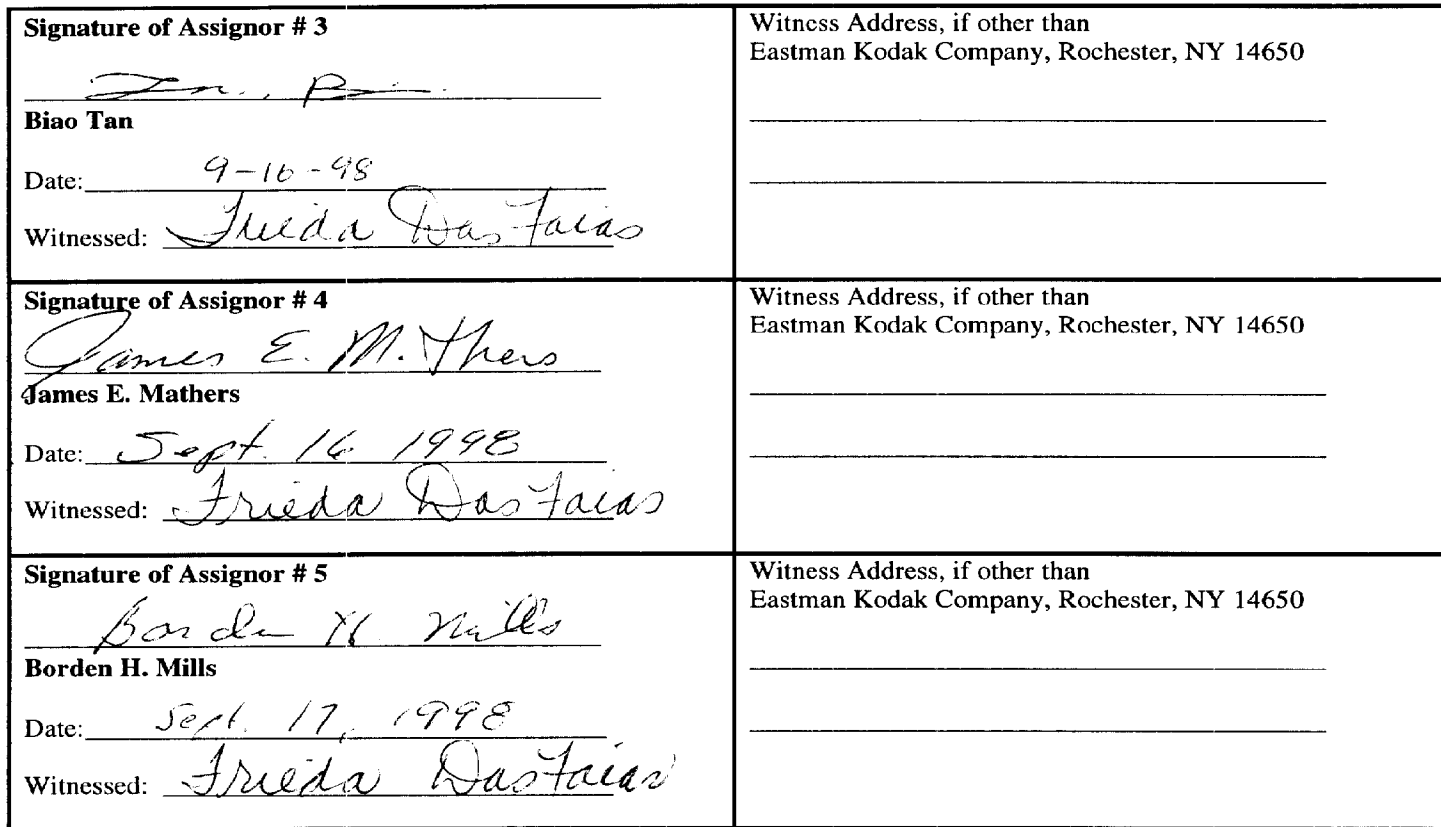 Signature of Assignor # 3
Biao Tan
Date: 9-16-98
Witnessed: Frieda DasFaias
Witness Address, if other than
Eastman Kodak Company, Rochester, NY 14650
Signature of Assignor # 4
James E. Mathers
James E. Mathers
Date: Sept. 16 1998
Witnessed: Frieda DasFaias
Witness Address, if other than
Eastman Kodak Company, Rochester, NY 14650
Signature of Assignor # 5
Borden H. Mills
Borden H. Mills
Date: Sept. 17, 1998
Witnessed: Frieda DasFaias
Witness Address, if other than
Eastman Kodak Company, Rochester, NY 14650